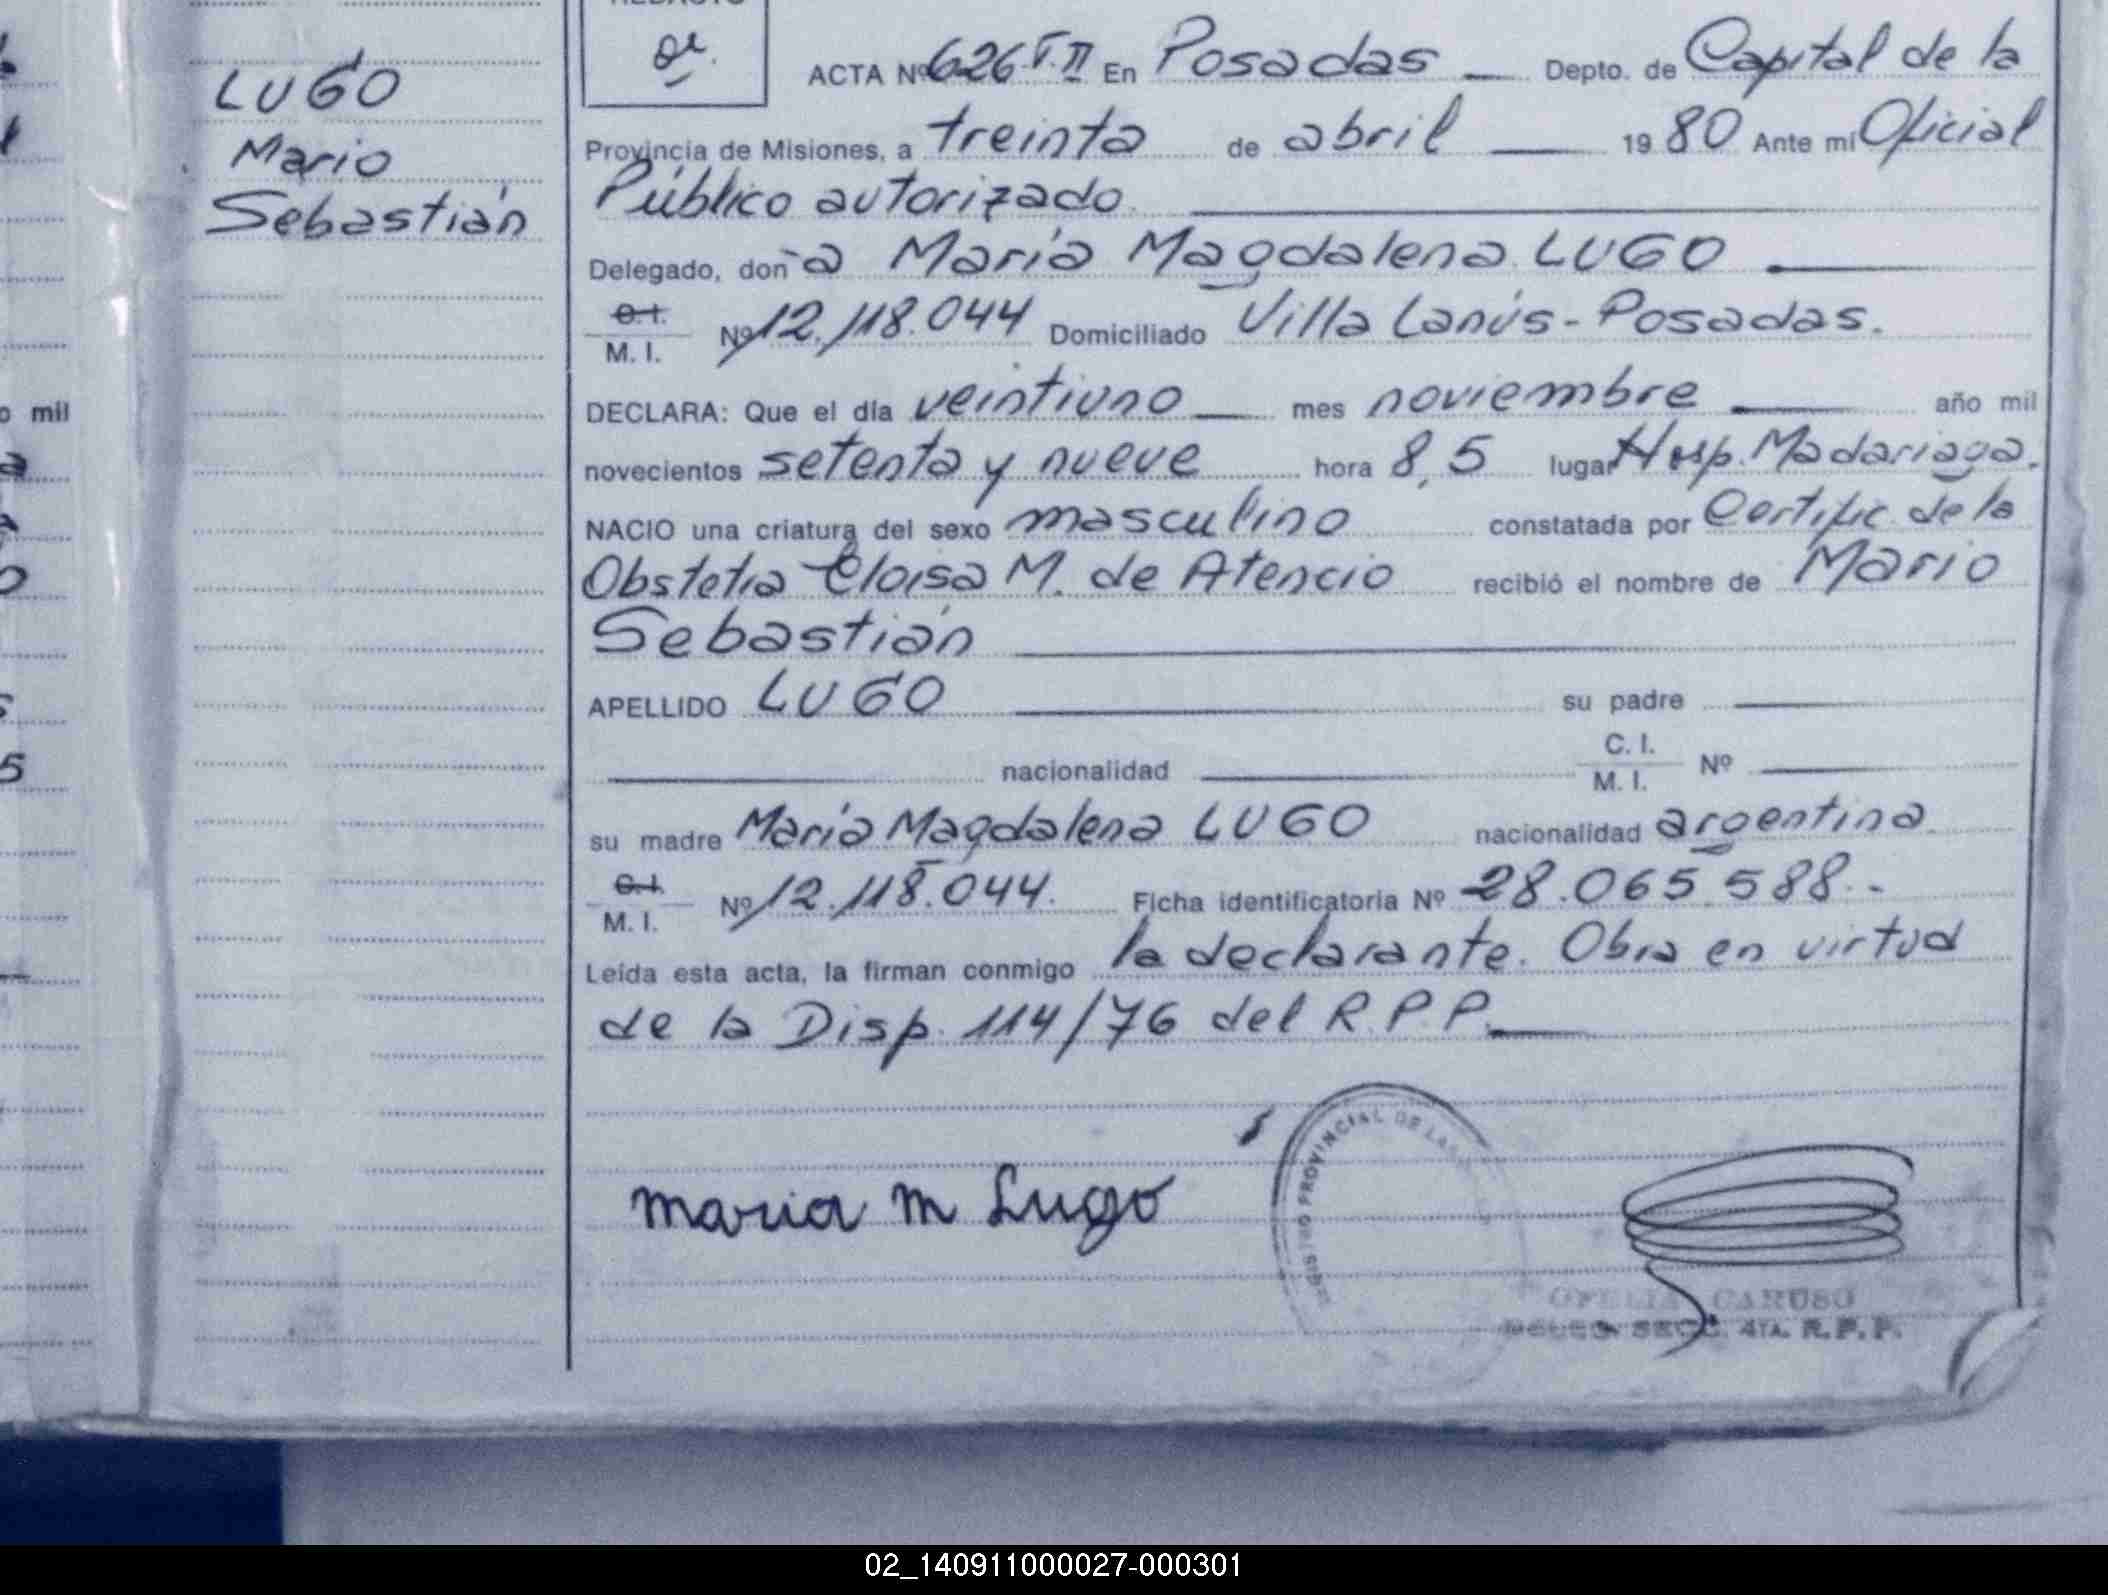 LUGO
Mario
Sebastián
ACTA Nº 626 T. II En Posadas Depto. de Capital de la
Provincia de Misiones, a treinta de abril 1980 Ante mí Oficial
Público autorizado.
Delegado, doña María Magdalena LUGO
C. I.
M. I. Nº 12.118.044 Domiciliado Villa Lanús - Posadas.
DECLARA: Que el día veintiuno mes noviembre año mil
novecientos setenta y nueve hora 8,5 lugar Hosp. Madariaga.
NACIO una criatura del sexo masculino constatada por Certific. de la
Obstetra Eloisa M. de Atencio recibió el nombre de Mario
Sebastián
APELLIDO LUGO su padre
nacionalidad C. I.
M. I. Nº
su madre María Magdalena LUGO nacionalidad argentina
C. I.
M. I. Nº 12.118.044. Ficha identificatoria Nº 28.065.588.-
Leída esta acta, la firman conmigo la declarante. Obra en virtud
de la Disp. 114/76 del R.P.P.
maria m Lugo
PROVINCIAL DE LAS
OFELIA CARUSO
SECC. 4TA. R.P.P.
o mil
02_140911000027-000301